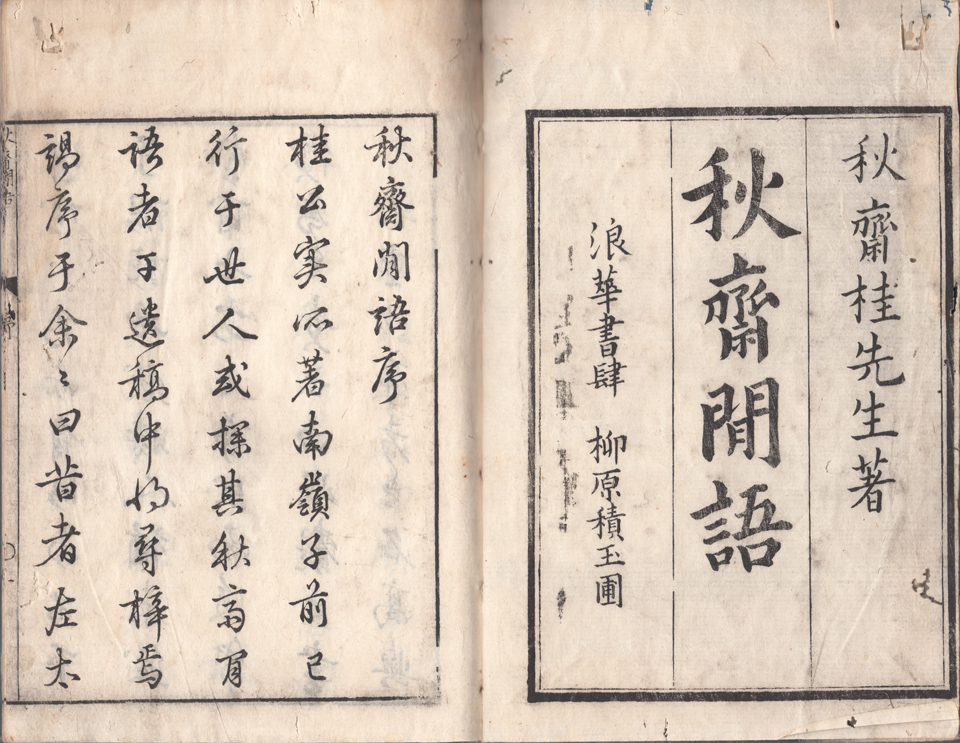 秋齋桂先生著
秋齋閒語
浪華書肆 柳原積玉圃
秋齋閒語序
桂公実所著南嶺子前已
行于世人或探其秋斎间
語者于遺稿中将寿梓焉
謁序于余〻曰昔者左太